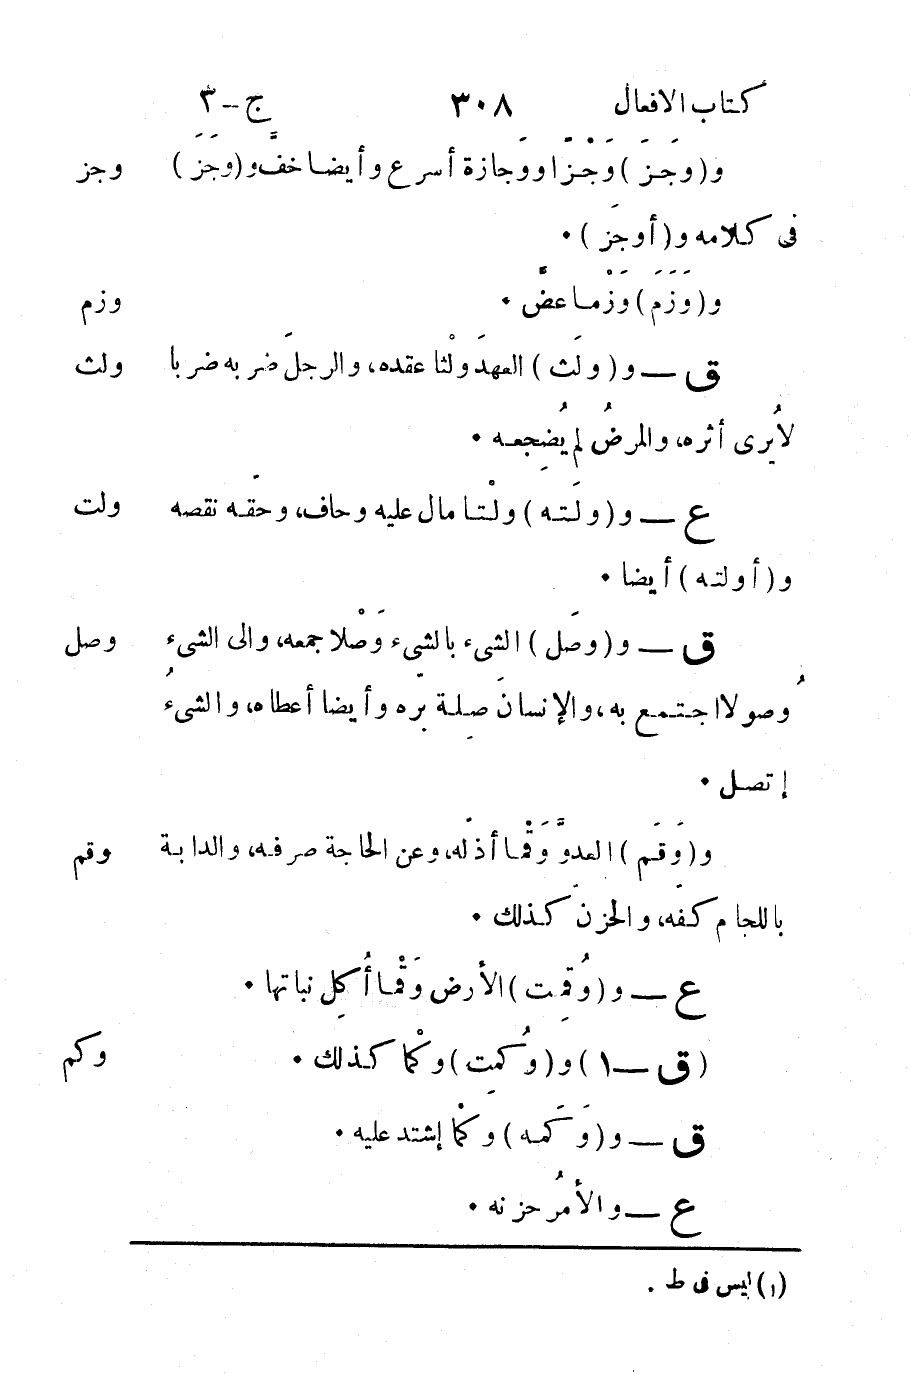 كتاب الافعال ٣٠٨ ج-٣
و(وَجَزَ) وَجْزًا ووَجازة أسرع وأيضا خفّ و(وَجَزَ) وجز
فى كلامه و(أوجَز) •
و(وَزَمَ) وَزْما عضَّ • وزم
ق — و(ولَث) العهدَ ولْثا عقده، والرجلَ ضربه ضربا ولث
لايُرى أثره، والمرضُ لم يُضجِعه •
ع — و(ولَته) ولْتا مال عليه وحاف، وحقَه نقصه ولت
و(أولته) أيضا •
ق — و(وصَل) الشىء بالشىء وَصْلا جمعه، والى الشىء وصل
وُصولا اجتمع به، والإنسانَ صلة بَرّه وأيضا أعطاه، والشىءُ
إتصل •
و(وَقَم) العدوَّ وَقْما أذلّه، وعن الحاجة صرفه، والدابة وقم
باللجام كفَه، والحزنَ كذلك •
ع — و(وُقِمت) الأرض وَقْما أُكِل نباتها •
(ق —١) و(وُكمِت) وكْما كذلك • وكم
ق — و(وَكَمه) وكْما إشتد عليه •
ع — والأمرُ حزنه •
(١) ليس فى ط .